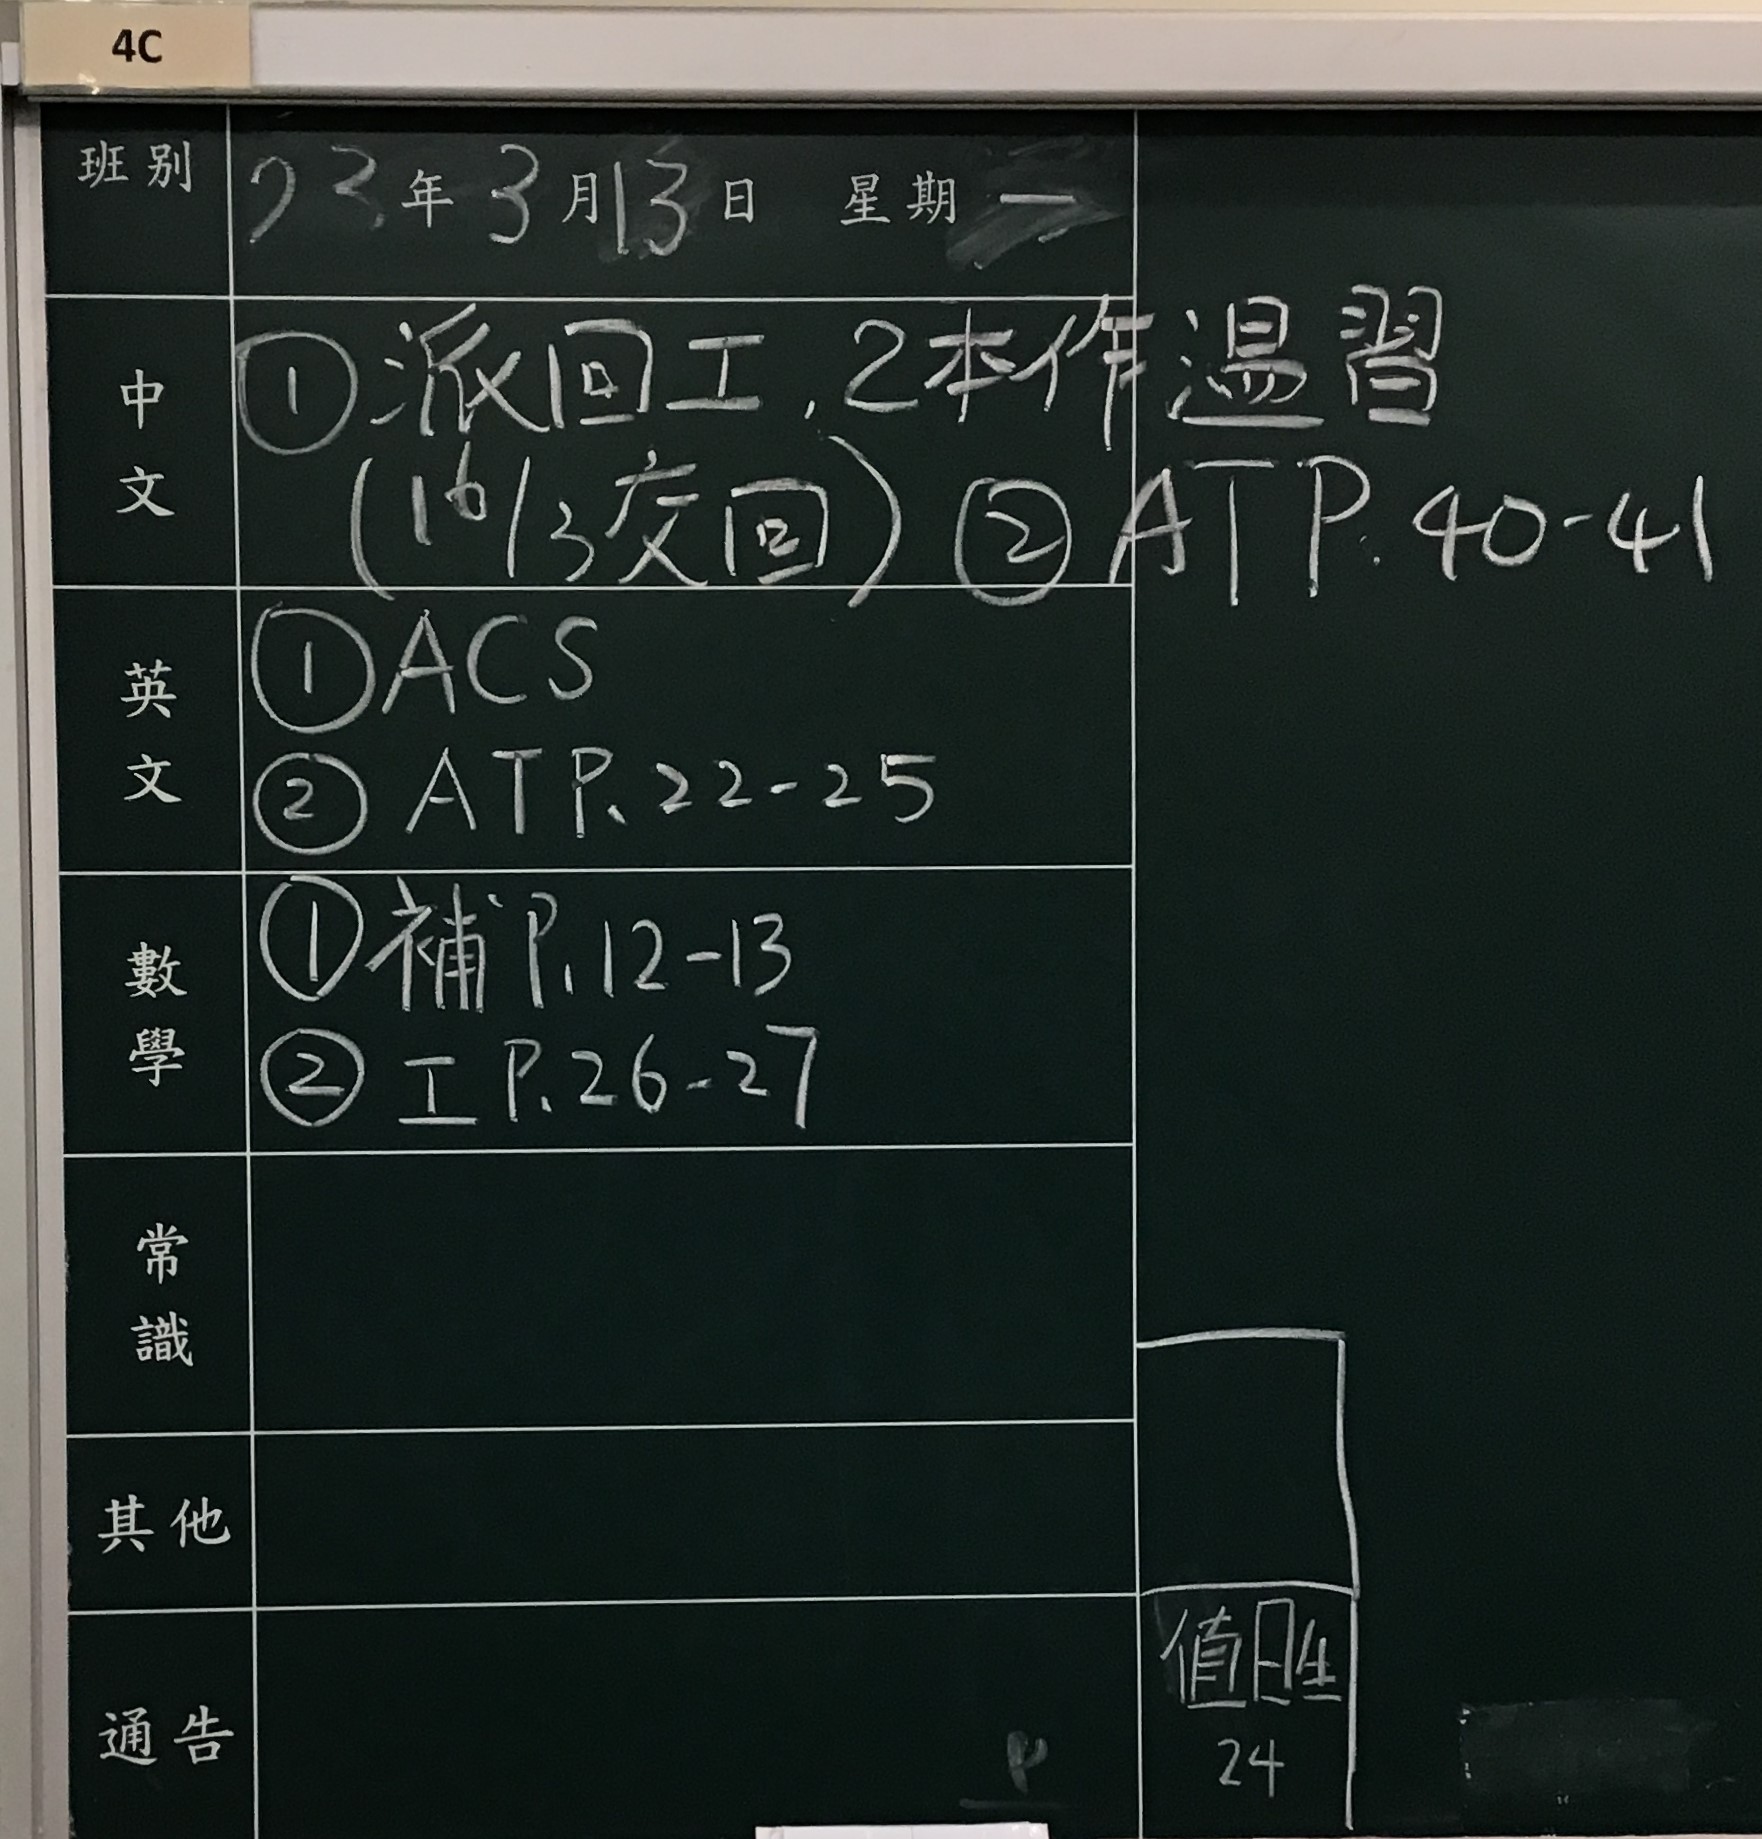 4C
班別 23年3月13日 星期一
中文 ①派回工,2本作溫習
(16/3交回) ②ATP.40-41
英文 ①ACS
②ATP.22-25
數學 ①補P.12-13
②工P.26-27
常識
其他
通告
值日生
24